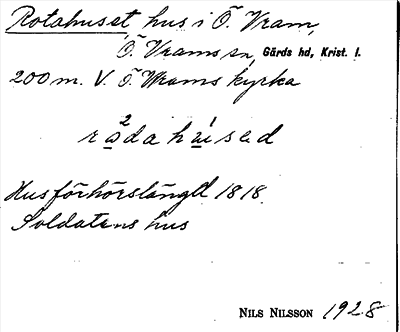 Rotahuset hus i Ö. Vram,
Ö. Vrams sn, Gärds hd, Krist. l.
200 m. V. Ö. Vrams kyrka
rådahused
Husförhörslängd 1818.
Soldatens hus
NILS NILSSON 1928